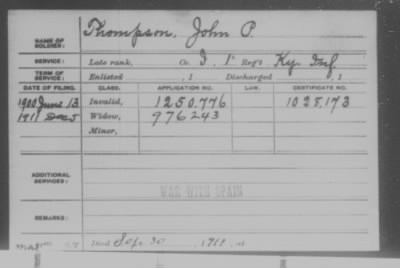 NAME OF SOLDIER: Thompson, John P.
SERVICE: Late rank, Co. I, 1" Reg't Ky Inf
TERM OF SERVICE: Enlisted , 1 Discharged , 1
DATE OF FILING. CLASS. APPLICATION NO. LAW. CERTIFICATE NO.
1900 June 13 Invalid, 1250.776 1028,173
1911 Dec 5 Widow, 976243
Minor,
ADDITIONAL SERVICES:
WAR WITH SPAIN
REMARKS:
Died Sep. 30 1911, at